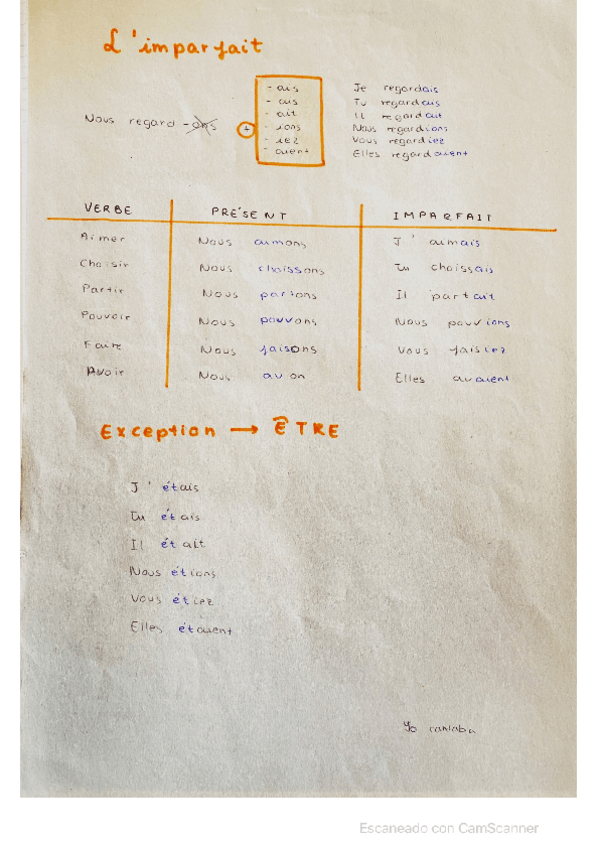 L'imparfait
Nous regard -ons + - ais Je regardais
- ais Tu regardais
- ait Il regardait
- ions Nous regardions
- iez Vous regardiez
- aient Elles regardaient
VERBE PRÉSENT IMPARFAIT
Aimer Nous aimons J' aimais
Choisir Nous choissons Tu choissais
Partir Nous partons Il partait
Pouvoir Nous pouvons Nous pouvions
Faire Nous faisons Vous faisiez
Avoir Nous avon Elles avaient
Exception → ÊTRE
J' étais
Tu étais
Il était
Nous étions
Vous étiez
Elles étaient
Yo cantaba
Escaneado con CamScanner